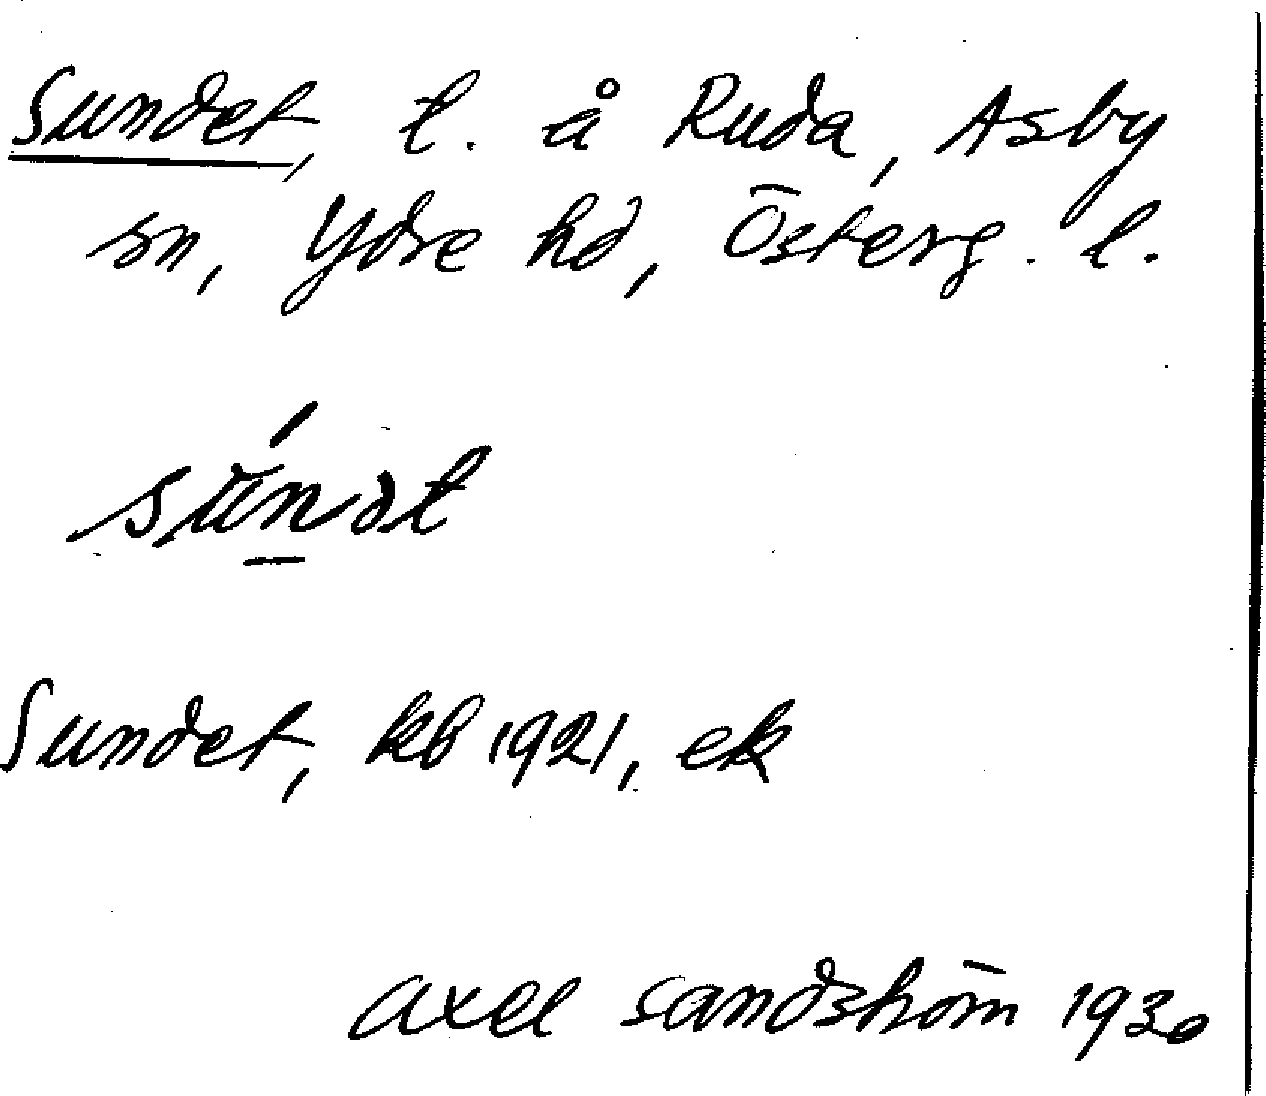 Sundet, t. å Ruda, Asby
sn, Ydre hd, Österg. l.
Sundet, kb 1921, ek
Axel Sandström 1930